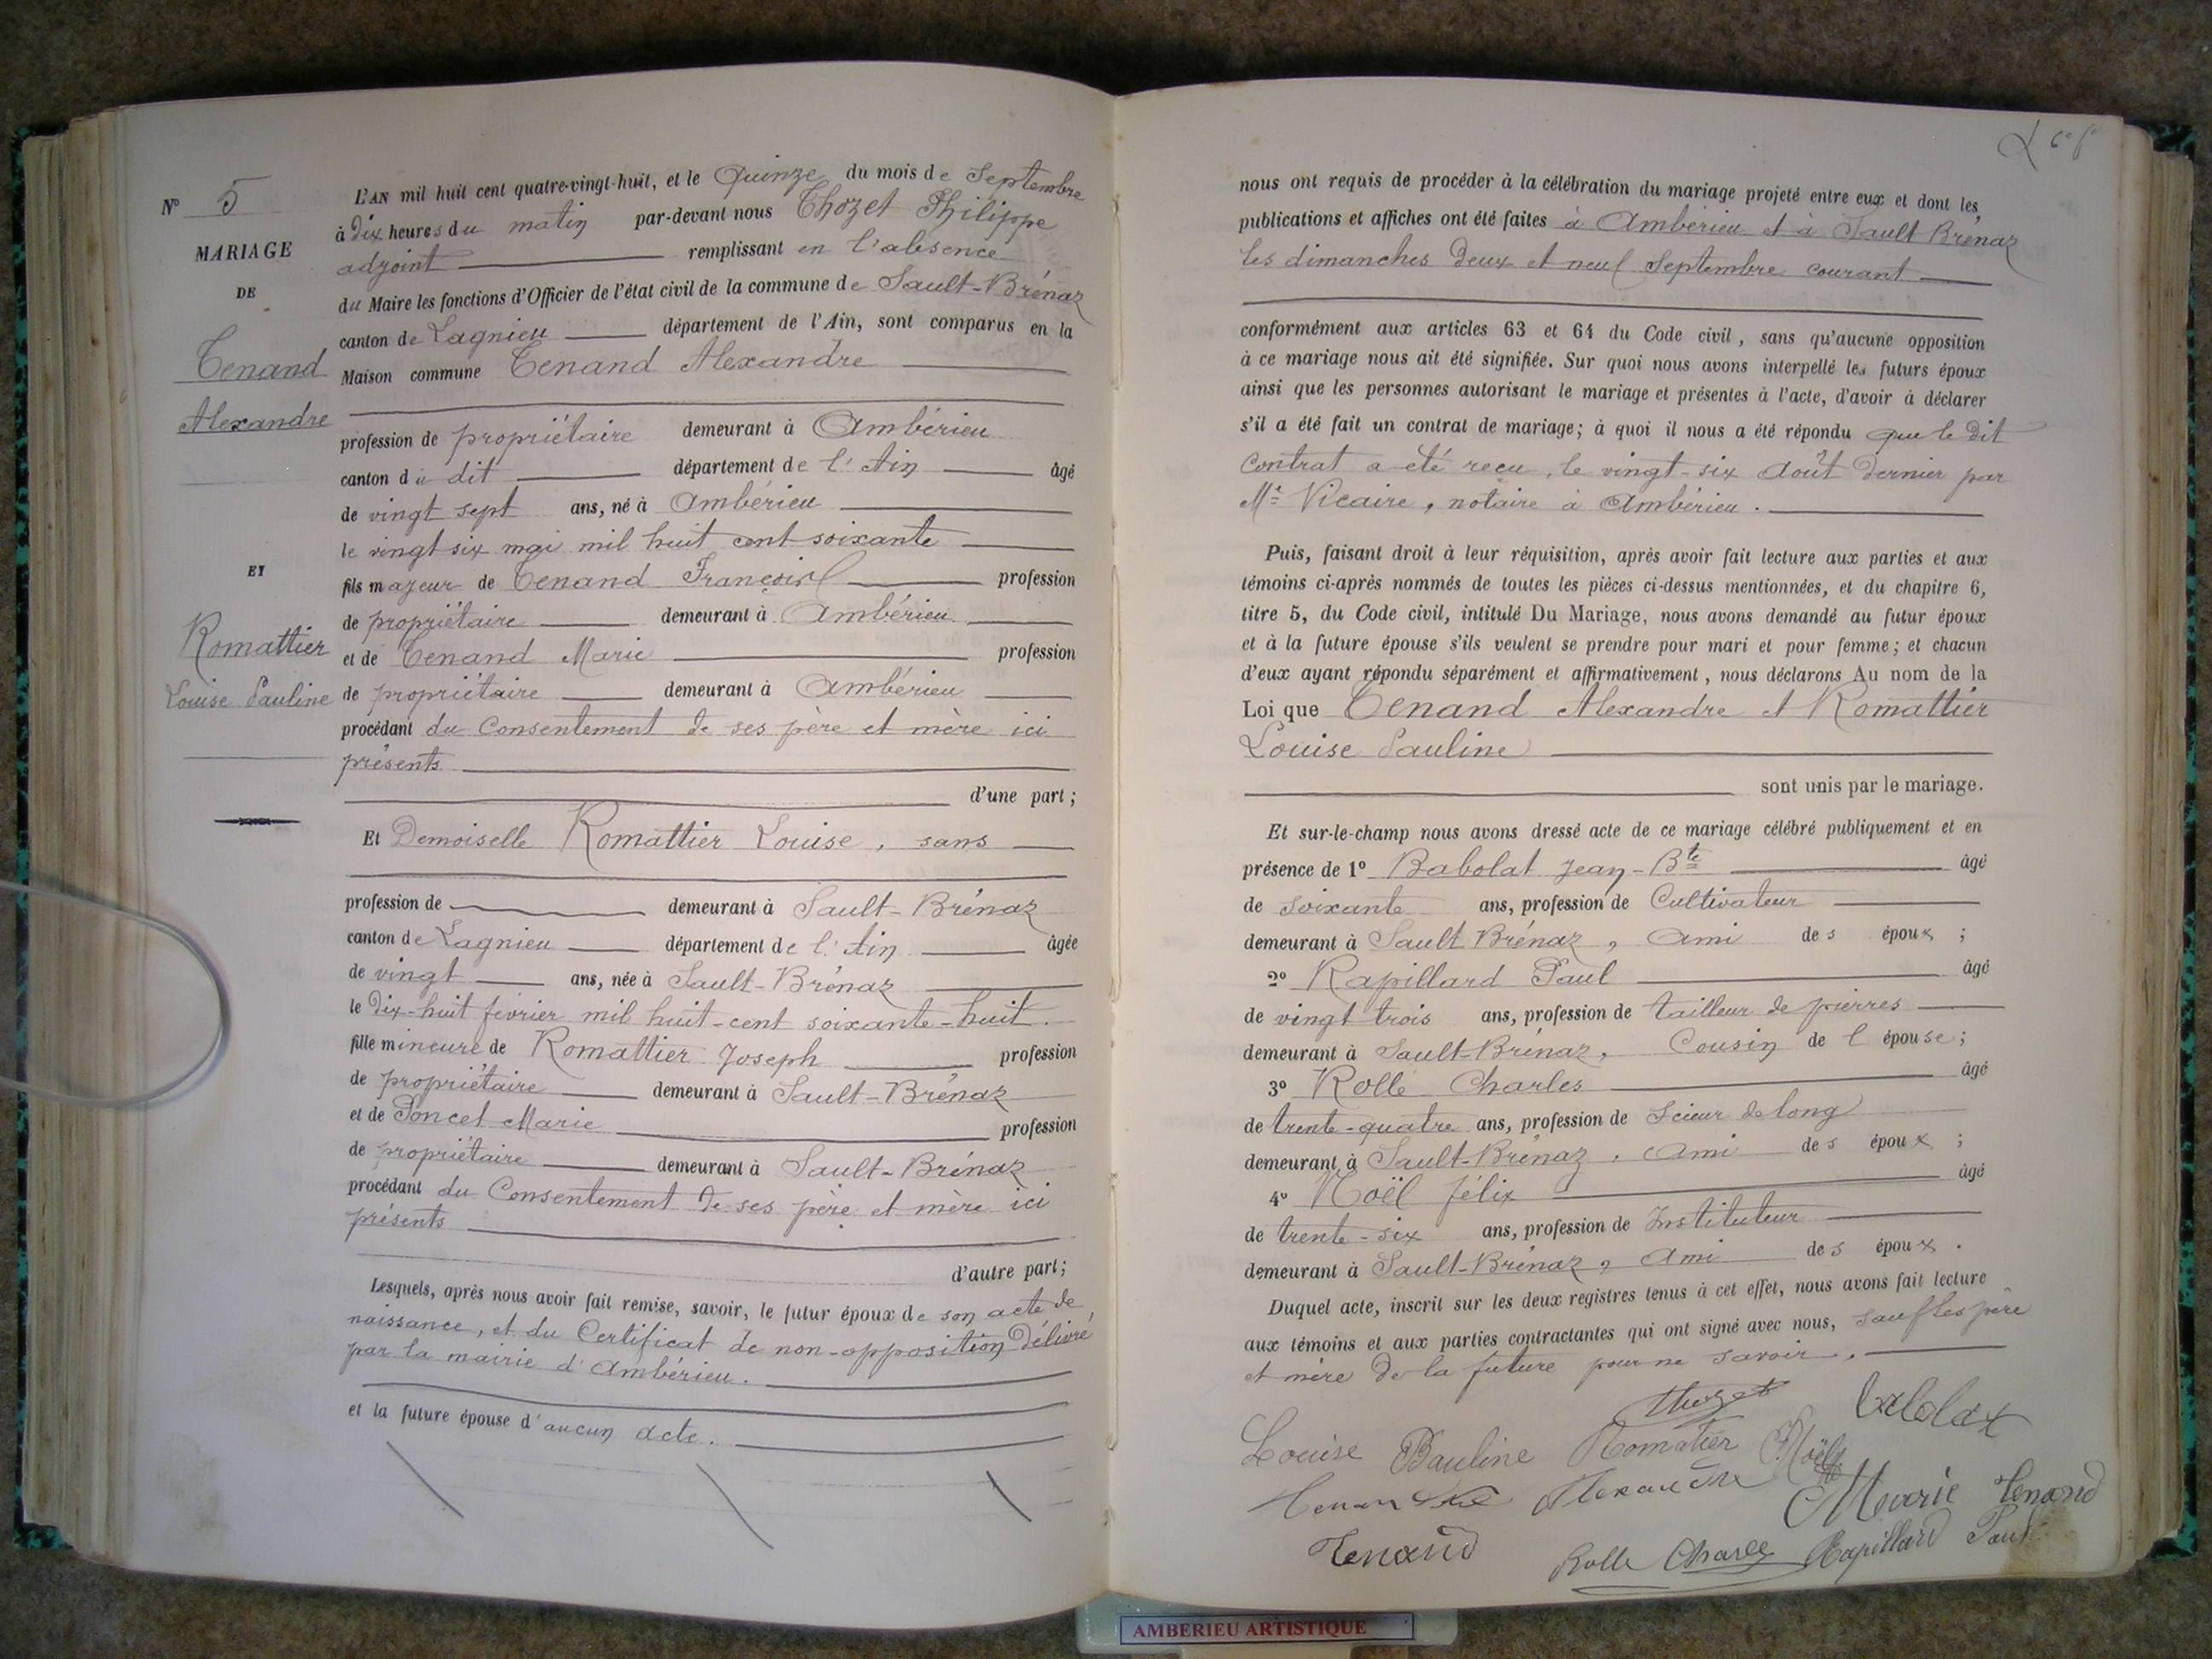 N° 5
MARIAGE
DE
Tenand
Alexandre
ET
Romattier
Louise Pauline
L'AN mil huit cent quatre-vingt-huit, et le Quinze du mois de Septembre
à Dix heures du matin par-devant nous Thozet Philippe
adjoint remplissant en l'absence
du Maire les fonctions d'Officier de l'état civil de la commune de Sault-Brénaz
canton de Lagnieu département de l'Ain, sont comparus en la
Maison commune Tenand Alexandre
profession de propriétaire demeurant à Ambérieu
canton du dit département de l'Ain âgé
de vingt sept ans, né à Ambérieu
le vingt six mai mil huit cent soixante
fils majeur de Tenand François profession
de propriétaire demeurant à Ambérieu
et de Tenand Marie profession
de propriétaire demeurant à Ambérieu
procédant du Consentement de ses père et mère ici
présents
d'une part;
Et Demoiselle Romattier Louise, sans
profession de demeurant à Sault-Brénaz
canton de Lagnieu département de l'Ain âgée
de vingt ans, née à Sault-Brénaz
le Dix-huit février mil huit-cent soixante-huit.
fille mineure de Romattier Joseph profession
de propriétaire demeurant à Sault-Brénaz
et de Poncet Marie profession
de propriétaire demeurant à Sault-Brénaz
procédant du Consentement de ses père et mère ici
présents
d'autre part;
Lesquels, après nous avoir fait remise, savoir, le futur époux de son acte de
naissance, et du Certificat de non-opposition Délivré
par la mairie d'Ambérieu.
et la future épouse d'aucun acte.
nous ont requis de procéder à la célébration du mariage projeté entre eux et dont les
publications et affiches ont été faites à Ambérieu et à Sault Brénaz
les dimanches Deux et neuf Septembre courant
conformément aux articles 63 et 64 du Code civil, sans qu'aucune opposition
à ce mariage nous ait été signifiée. Sur quoi nous avons interpellé les futurs époux
ainsi que les personnes autorisant le mariage et présentes à l'acte, d'avoir à déclarer
s'il a été fait un contrat de mariage; à quoi il nous a été répondu que le dit
Contrat a été reçu, le vingt-six Août Dernier par
Me Vicaire, notaire à Ambérieu.
Puis, faisant droit à leur réquisition, après avoir fait lecture aux parties et aux
témoins ci-après nommés de toutes les pièces ci-dessus mentionnées, et du chapitre 6,
titre 5, du Code civil, intitulé Du Mariage, nous avons demandé au futur époux
et à la future épouse s'ils veulent se prendre pour mari et pour femme; et chacun
d'eux ayant répondu séparément et affirmativement, nous déclarons Au nom de la
Loi que Tenand Alexandre et Romattier
Louise Pauline
sont unis par le mariage.
Et sur-le-champ nous avons dressé acte de ce mariage célébré publiquement et en
présence de 1° Babolat Jean-Bte âgé
de soixante ans, profession de Cultivateur
demeurant à Sault Brénaz, Ami des époux;
2° Rapillard Paul âgé
de vingt trois ans, profession de tailleur de pierres
demeurant à Sault-Brénaz, Cousin de l'épouse;
3° Rolle Charles âgé
de trente-quatre ans, profession de Scieur de long
demeurant à Sault-Brénaz, Ami des époux;
4° Noël félix âgé
de trente-six ans, profession de Instituteur
demeurant à Sault-Brénaz, Ami des époux.
Duquel acte, inscrit sur les deux registres tenus à cet effet, nous avons fait lecture
aux témoins et aux parties contractantes qui ont signé avec nous, sauf les père
et mère de la future pour ne savoir.
Thozet Babolat
Louise Pauline Romatier Noël
Alexandre Marie Tenand
Tenand Rolle Charles Rapillard Paul
AMBERIEU ARTISTIQUE